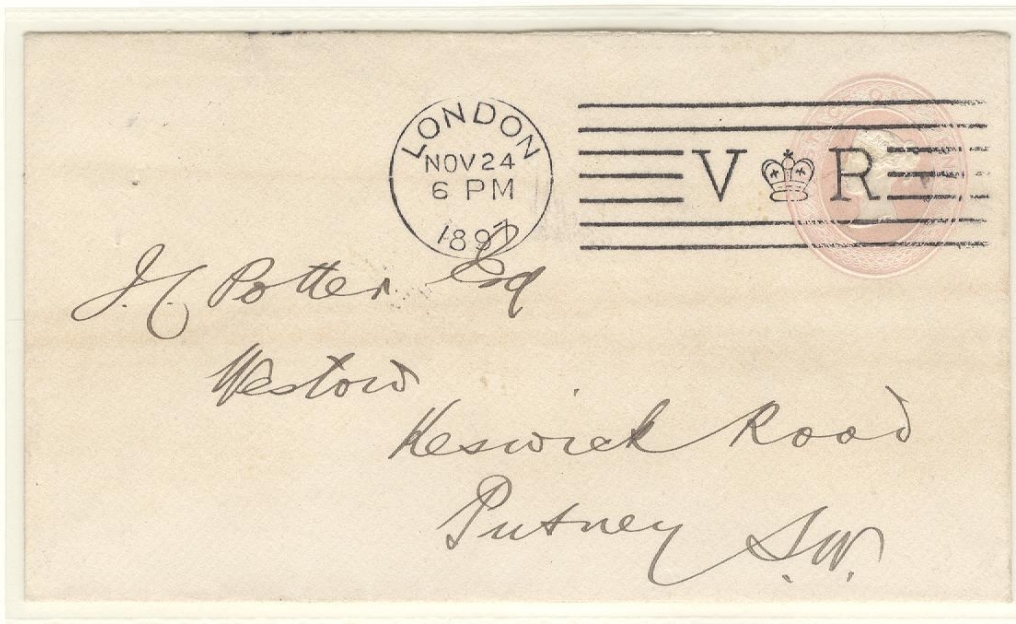 LONDON
NOV 24
6 PM
1897
V R
J. C. Potter Esq
Westow
Keswick Road
Putney S.W.